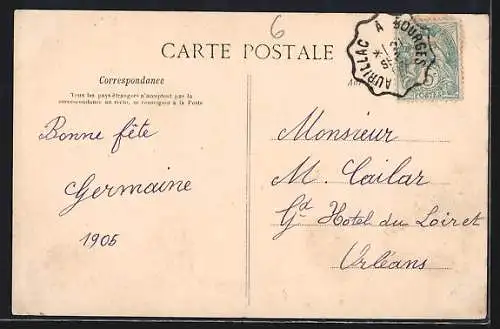 6
CARTE POSTALE
AURILLAC A BOURGES
5
POSTES
Correspondance
Tous les pays étrangers n'acceptent pas la
correspondance au recto, se renseigner à la Poste
Bonne fête
Germaine
1905
Monsieur
M. Cailar
Gd Hotel du Loiret
Orléans